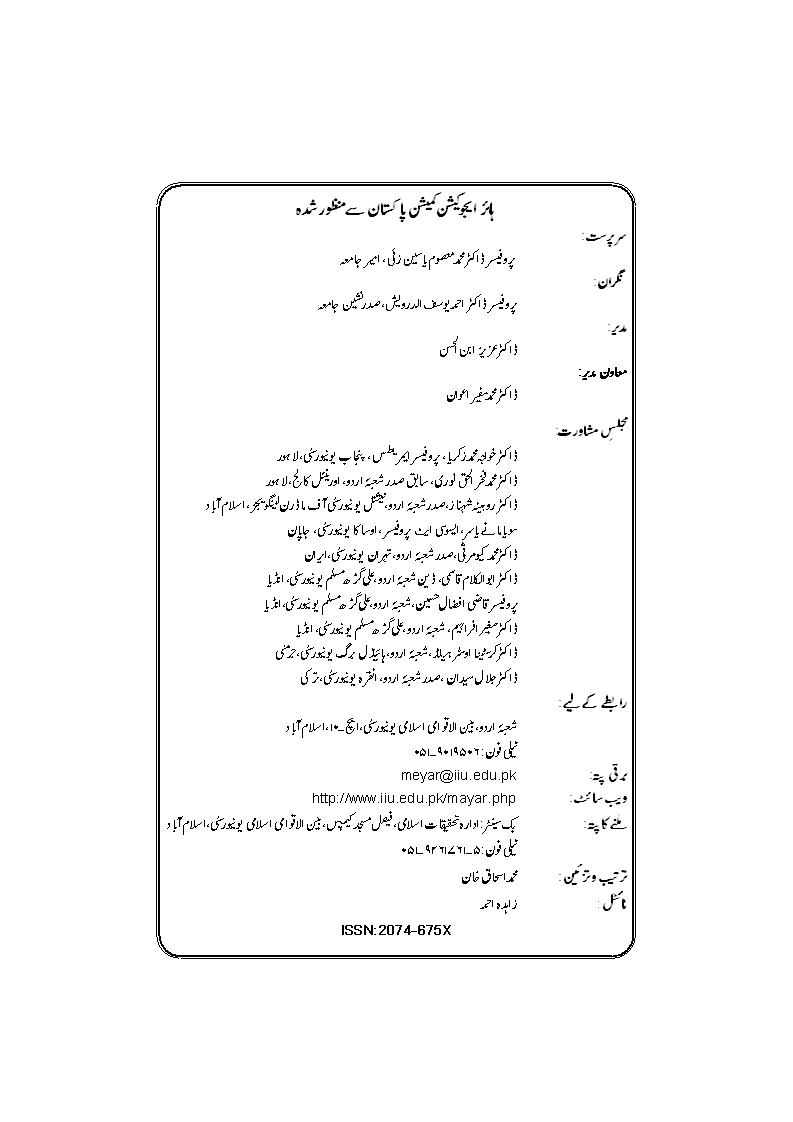 ہائر ایجوکیشن کمیشن پاکستان سے منظور شدہ
سرپرست:
پروفیسر ڈاکٹر محمد معصوم یاسین زئی، امیر جامعہ
نگران:
پروفیسر ڈاکٹر احمد یوسف الدرویش، صدر نشین جامعہ
مدیر:
ڈاکٹر عزیز ابن الحسن
معاون مدیر:
ڈاکٹر محمد سفیر اعوان
مجلسِ مشاورت:
ڈاکٹر خواجہ محمد زکریا، پروفیسر ایمریطس، پنجاب یونیورسٹی، لاہور
ڈاکٹر محمد فخر الحق نوری، سابق صدر شعبۂ اردو، اورینٹل کالج، لاہور
ڈاکٹر روبینہ شہناز، صدر شعبۂ اردو، نیشنل یونیورسٹی آف ماڈرن لینگویجز، اسلام آباد
سویامانے یاسر، ایسوسی ایٹ پروفیسر، اوساکا یونیورسٹی، جاپان
ڈاکٹر محمد کیومرثی، صدر شعبۂ اردو، تہران یونیورسٹی، ایران
ڈاکٹر ابوالکلام قاسمی، ڈین شعبۂ اردو، علی گڑھ مسلم یونیورسٹی، انڈیا
پروفیسر قاضی افضال حسین، شعبۂ اردو، علی گڑھ مسلم یونیورسٹی، انڈیا
ڈاکٹر صغیر افراہیم، شعبۂ اردو، علی گڑھ مسلم یونیورسٹی، انڈیا
ڈاکٹر کرسٹینا اوسٹر ہیلڈ، شعبۂ اردو، ہائیڈل برگ یونیورسٹی، جرمنی
ڈاکٹر جلال سیدان، صدر شعبۂ اردو، انقرہ یونیورسٹی، ترکی
رابطے کے لیے:
شعبۂ اردو، بین الاقوامی اسلامی یونیورسٹی، ایچ۔۱۰، اسلام آباد
ٹیلی فون: ۹۰۱۹۵۰۶۔۰۵۱
برقی پتہ: meyar@iiu.edu.pk
ویب سائٹ: http://www.iiu.edu.pk/mayar.php
ملنے کا پتہ: بک سینٹر: ادارہ تحقیقات اسلامی، فیصل مسجد کیمپس، بین الاقوامی اسلامی یونیورسٹی، اسلام آباد
ٹیلی فون: ۵۔۹۲۶۱۷۶۱۔۰۵۱
ترتیب و تزئین: محمد اسحاق خان
ٹائٹل: زاہدہ احمد
ISSN: 2074-675X